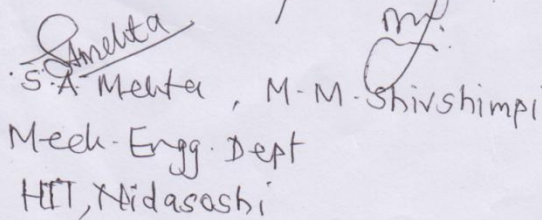 Smehta
S.A. Mehta, M.M.Shivshimpi
Mech.Engg.Dept
HIT,Nidasoshi